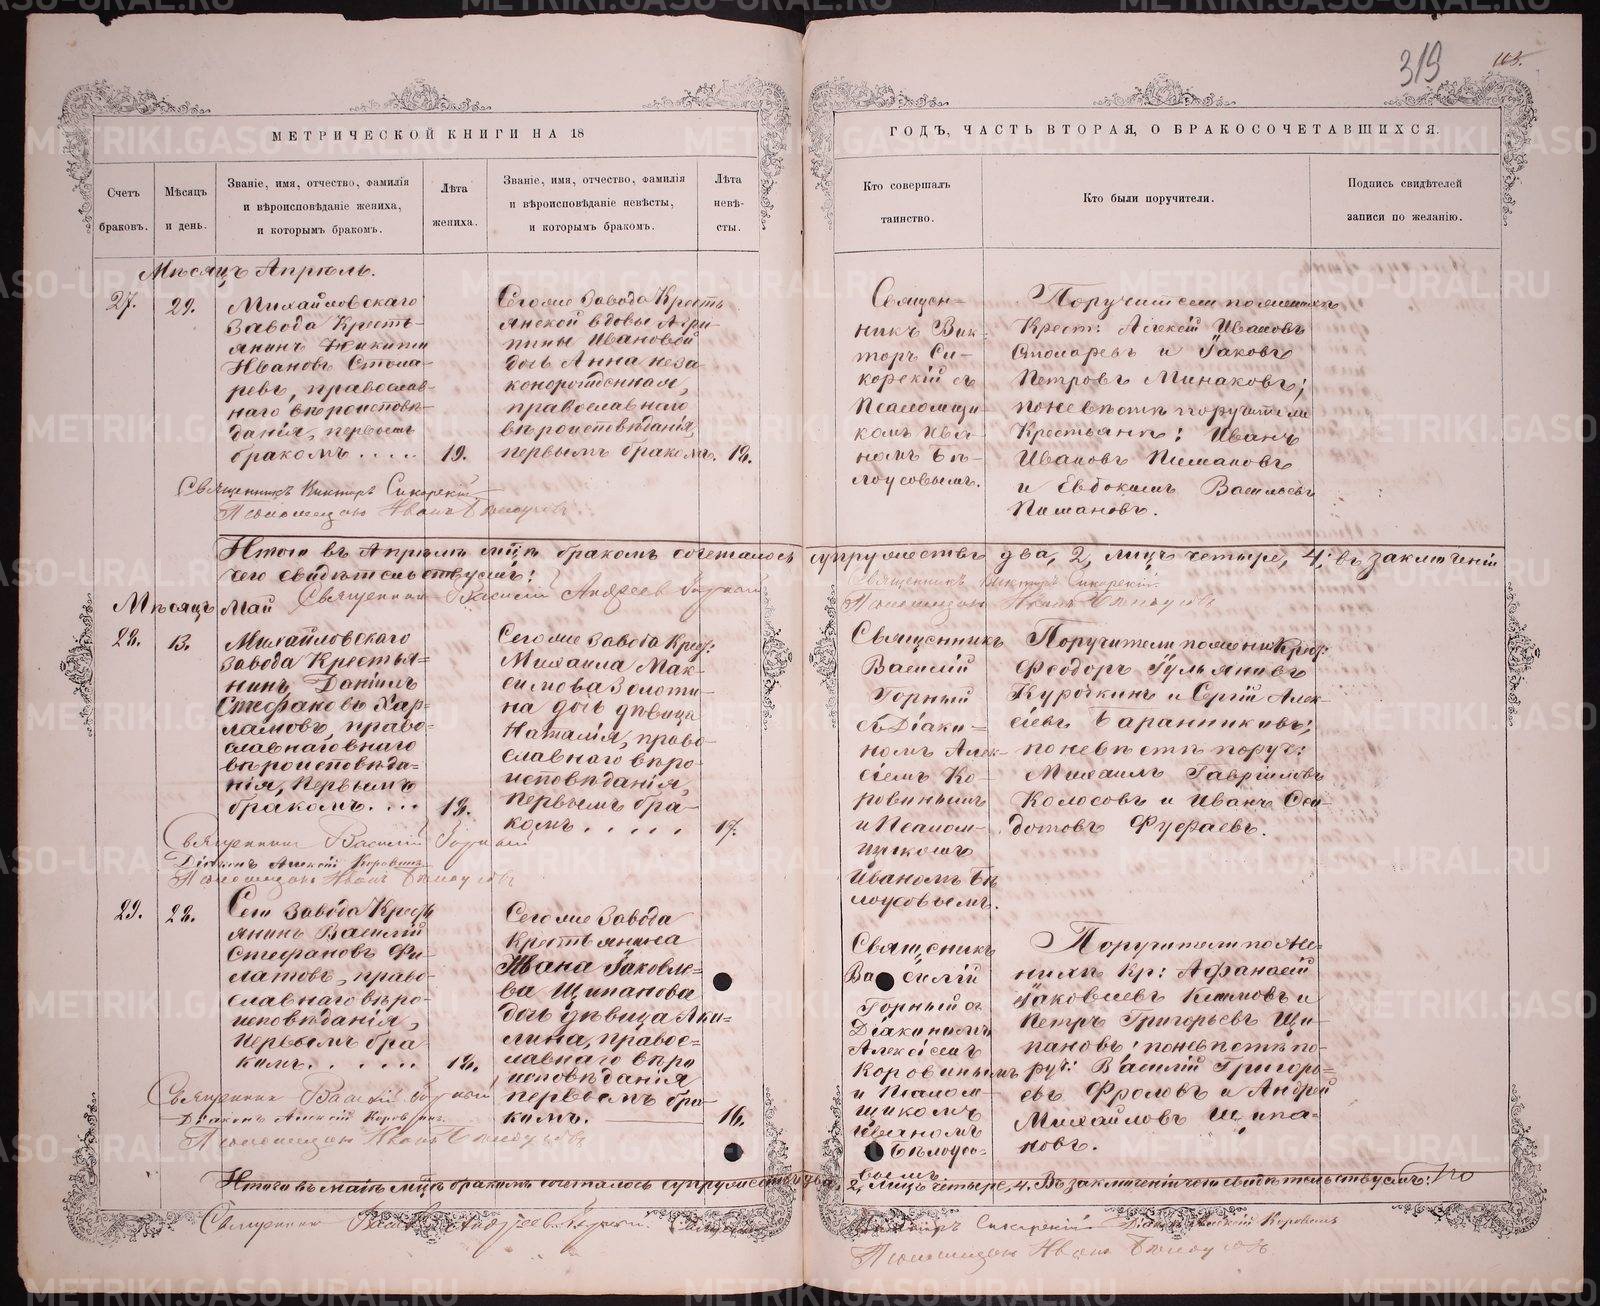 319
МЕТРИЧЕСКОЙ КНИГИ НА 18
ГОДЪ, ЧАСТЬ ВТОРАЯ, О БРАКОСОЧЕТАВШИХСЯ.
Счетъ
браковъ.
Мѣсяцъ
и день.
Званіе, имя, отчество, фамилія
и вѣроисповѣданіе жениха,
и которымъ бракомъ.
Лѣта
жениха.
Званіе, имя, отчество, фамилія
и вѣроисповѣданіе невѣсты,
и которымъ бракомъ.
Лѣта
невѣ-
сты.
Кто совершалъ
таинство.
Кто были поручители.
Подпись свидѣтелей
записи по желанію.
Мѣсяцъ Апрѣль.
27.
29.
Михайловскаго
завода Кресть-
янинъ Никита
Ивановъ Столя-
ревъ, православ-
наго вѣроисповѣ-
данія, первымъ
бракомъ . . . .
19.
Сего же Завода Кресть
янской вдовы Агри-
пины Ивановой
дочь Анна неза
конорожденная,
православнаго
вѣроисповѣданія,
первымъ бракомъ.
18.
Священ-
никъ Вик-
торъ Си-
корскій съ
Псаломщи-
комъ Ива-
номъ Бѣ-
лоусовымъ.
Поручители по женихѣ
Крест: Алексій Ивановъ
Столяревъ и Іаковъ
Петровъ Минаковъ;
по невѣстѣ поручители
Крестьяне: Иванъ
Ивановъ
и Евдокимъ Васильевъ
Священникъ Викторъ Сикорскій
Псаломщикъ Иванъ Бѣлоусовъ
Итого въ Апрѣлѣ м-цѣ бракомъ сочеталось супружествъ два, 2, лицъ четыре, 4; въ заключеніи
чего свидѣтельствуемъ:
Священникъ Василій Андреевъ Горный
Священникъ Викторъ Сикорскій
Псаломщикъ Иванъ Бѣлоусовъ
Мѣсяцъ Май
28.
13.
Михайловскаго
завода Крестья-
нинъ Даніилъ
Стефановъ Хар-
ламовъ, право-
славнаго
вѣроисповѣда-
нія, первымъ
бракомъ. . . .
18.
Сего же завода Крес:
Михаила Мак-
симова Золоти-
на дочь дѣвица
Наталія, право-
славнаго вѣро
исповѣданія,
первымъ бра-
комъ. . . . .
17.
Священникъ
Василій
Горный
съ Діако-
номъ Алек-
сіемъ Ко-
ровинымъ
и Псалом-
щикомъ
Иваномъ Бѣ
лоусовымъ.
Поручители по женихѣ Крес:
Феодоръ Гульянивъ
Курочкинъ и Сергій Алек-
сіевъ Баранниковъ;
по невѣстѣ поруч:
Михаилъ Гавріиловъ
Колосовъ и Иванъ
Фуфаевъ.
Священникъ Василій Горный
Діаконъ Алексій Коровинъ
Псаломщикъ Иванъ Бѣлоусовъ
29.
22.
Сего Завода Кресть
янинъ Василій
Стефановъ Фи-
латовъ, право-
славнаго вѣро-
исповѣданія,
первымъ бра
комъ. . . . . .
18.
Сего же Завода
Крестьянина
Ивана Іаковле-
ва Щипанова
дочь дѣвица Аки-
лина, правос-
лавнаго вѣро
исповѣданія
первымъ бра-
комъ.
16.
Священникъ
Василій
Горный съ
Діакономъ
Алексіемъ
Коровинымъ
и Псалом
щикомъ
Иваномъ
Бѣлоусо-
вымъ
Поручители по же-
нихѣ Кр: Афанасій
Іаковлевъ Климовъ и
Петръ Григорьевъ Щи-
пановъ; по невѣстѣ по-
руч: Василій Григорь-
евъ Фроловъ и Андрей
Михайловъ Щипа-
новъ.
Священникъ Василій Горный
Діаконъ Алексій Коровинъ
Псаломщикъ Иванъ Бѣлоусовъ
Итого въ маѣ м-цѣ бракомъ сочеталось супружествъ два,
2, лицъ четыре, 4. Въ заключеніи чего свидѣтельствуемъ:
Священникъ Василій Андреевъ Горный. Священникъ
Викторъ Сикорскій Діаконъ Алексій Коровинъ
Псаломщикъ Иванъ Бѣлоусовъ
METRIKI.GASO-URAL.RU